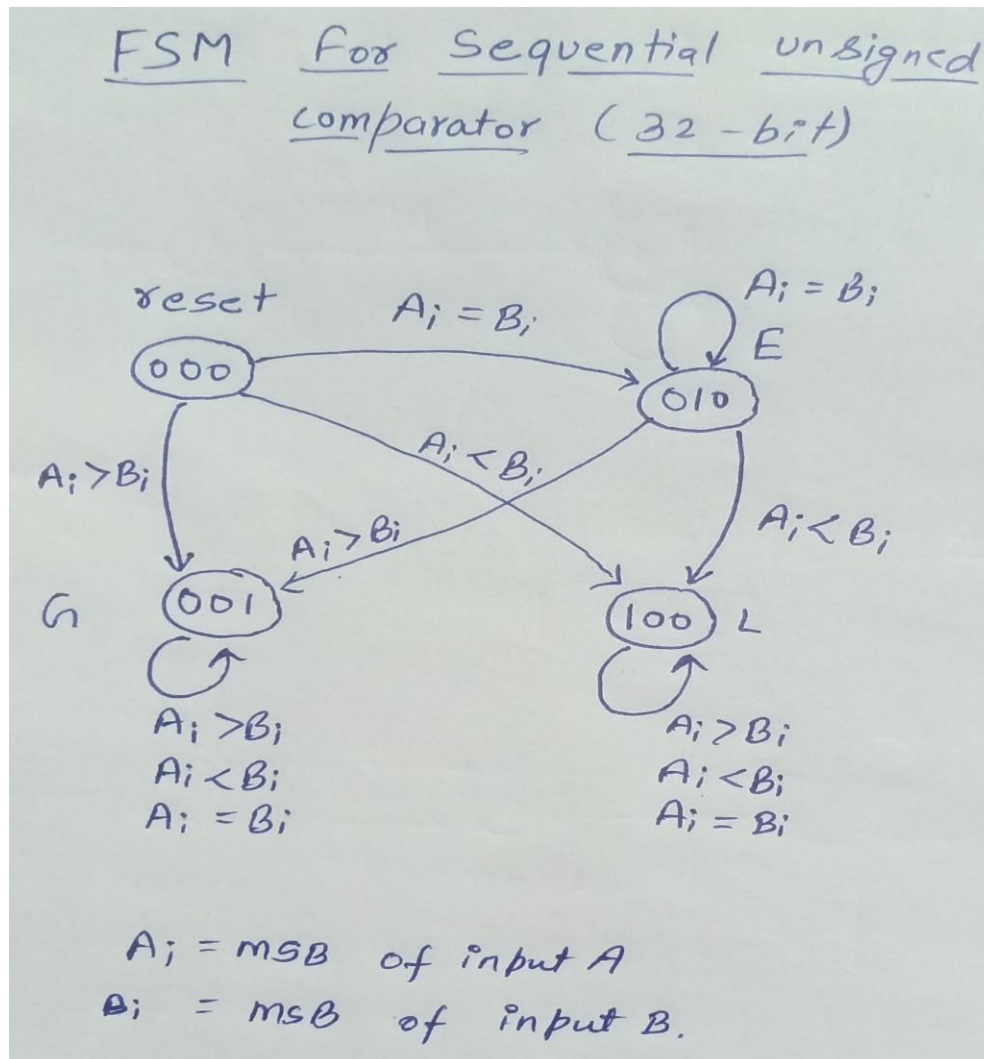 FSM for Sequential unsigned
comparator (32-bit)
reset
Ai = Bi
Ai = Bi
E
000
010
Ai > Bi
Ai < Bi
Ai > Bi
Ai < Bi
G
001
100
L
Ai > Bi
Ai < Bi
Ai = Bi
Ai > Bi
Ai < Bi
Ai = Bi
Ai = MSB of input A
Bi = MSB of input B.